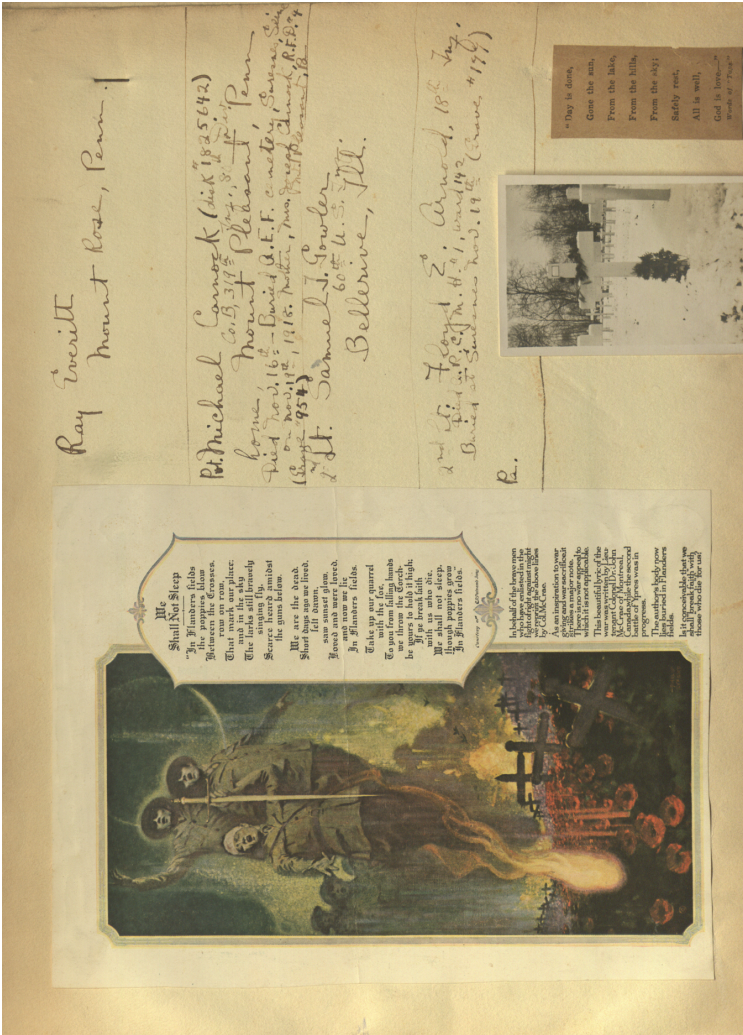 Ray Everitt
Mount Rose, Penn.
Pvt. Michael Cornock (disk #1825642)
Co. B, 319th Inf., 8 Div.
home, Mount Pleasant, Penn
Died Nov. 16th – Buried A.E.F. cemetery, Suresnes, Seine
on Nov. 19th, 1918. Mother, Mrs. Joseph Cornock, R.F.D. #4
(Grave #954) Mt. Pleasant, Pa
2nd Lt. Samuel J. Gowler
60th U.S. Inf.
Bellerive, Ill.
2nd Lt. Floyd E. Arnold, 18th Inf.
Died in A.R.C.M.H. #1, Ward 142
Buried at Suresnes Nov. 19th (Grave #199)
Pa.
"Day is done,
Gone the sun,
From the lake,
From the hills,
From the sky;
Safely rest,
All is well,
God is love—"
Words of "Taps"
We
Shall Not Sleep
"In Flanders fields
the poppies blow
Between the Crosses,
row on row,
That mark our place:
and in the sky
The larks still bravely
singing fly,
Scarce heard amidst
the guns below.
We are the dead.
Short days ago we lived,
felt dawn,
saw sunset glow,
Loved and were loved,
and now we lie
In Flanders fields.
Take up our quarrel
with the foe,
To you from falling hands
we throw the Torch—
be yours to hold it high:
If ye break faith
with us who die,
We shall not sleep,
though poppies grow
In Flanders fields."
In behalf of the brave men
who have enlisted in the
fight of right against might
we reproduce the above lines
by Col. McCrae.
As an inspiration to war
giving and sacrifice it
strikes a major note.
There is no war appeal to
which it is not applicable.
This beautiful lyric of the
war was written by Lieu-
tenant Colonel Dr. John
McCrae of Montreal,
Canada, while the second
battle of Ypres was in
progress.
The author's body now
lies buried in Flanders
fields.
Is it conceivable that we
shall "break faith with
those who die for us?"